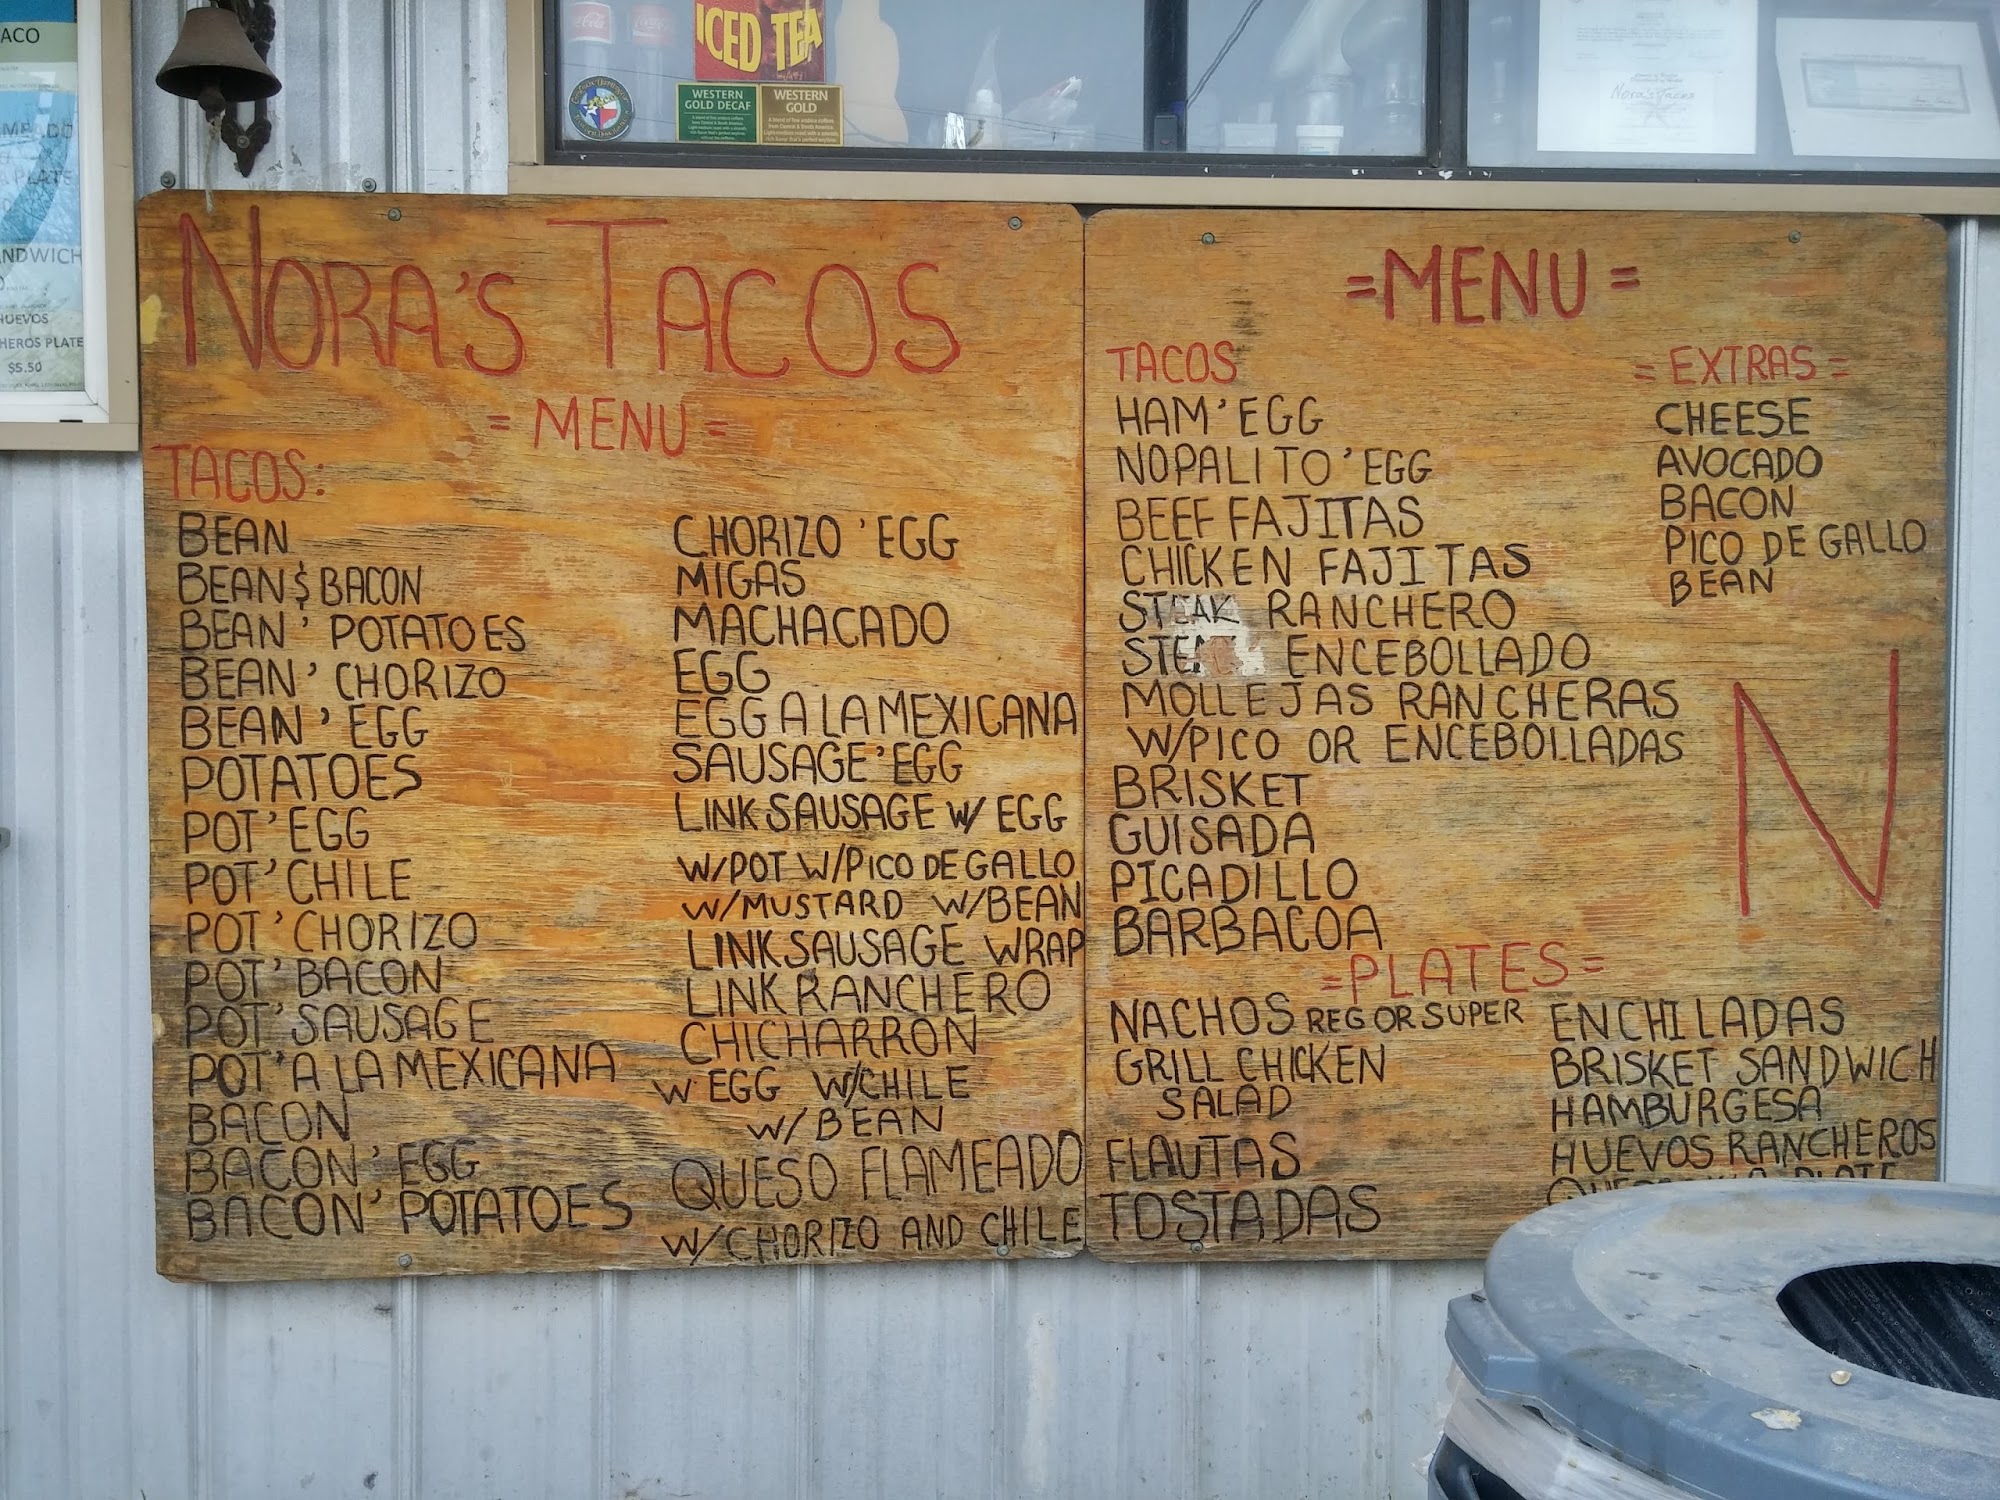 ACO
PLATE
NDWICH
HUEVOS
HEROS PLATE
$5.50
ICED TEA
WESTERN
GOLD DECAF
WESTERN
GOLD
Nora's Tacos
NORA'S TACOS
= MENU =
TACOS:
BEAN
BEAN $ BACON
BEAN ' POTATOES
BEAN ' CHORIZO
BEAN ' EGG
POTATOES
POT' EGG
POT' CHILE
POT' CHORIZO
POT' BACON
POT' SAUSAGE
POT' A LA MEXICANA
BACON
BACON' EGG
BACON' POTATOES
CHORIZO 'EGG
MIGAS
MACHACADO
EGG
EGG A LA MEXICANA
SAUSAGE'EGG
LINK SAUSAGE W/ EGG
W/POT W/PICO DE GALLO
W/MUSTARD W/BEAN
LINK SAUSAGE WRAP
LINK RANCHERO
CHICHARRON
W EGG W/CHILE
W/ BEAN
QUESO FLAMEADO
W/CHORIZO AND CHILE
=MENU=
TACOS
HAM'EGG
NOPALITO'EGG
BEEF FAJITAS
CHICKEN FAJITAS
STEAK RANCHERO
ENCEBOLLADO
MOLLEJAS RANCHERAS
W/PICO OR ENCEBOLLADAS
BRISKET
GUISADA
PICADILLO
BARBACOA
= EXTRAS =
CHEESE
AVOCADO
BACON
PICO DE GALLO
BEAN
N
=PLATES=
NACHOS REG OR SUPER
GRILL CHICKEN
SALAD
FLAUTAS
TOSTADAS
ENCHILADAS
BRISKET SANDWICH
HAMBURGESA
HUEVOS RANCHEROS
PLATE